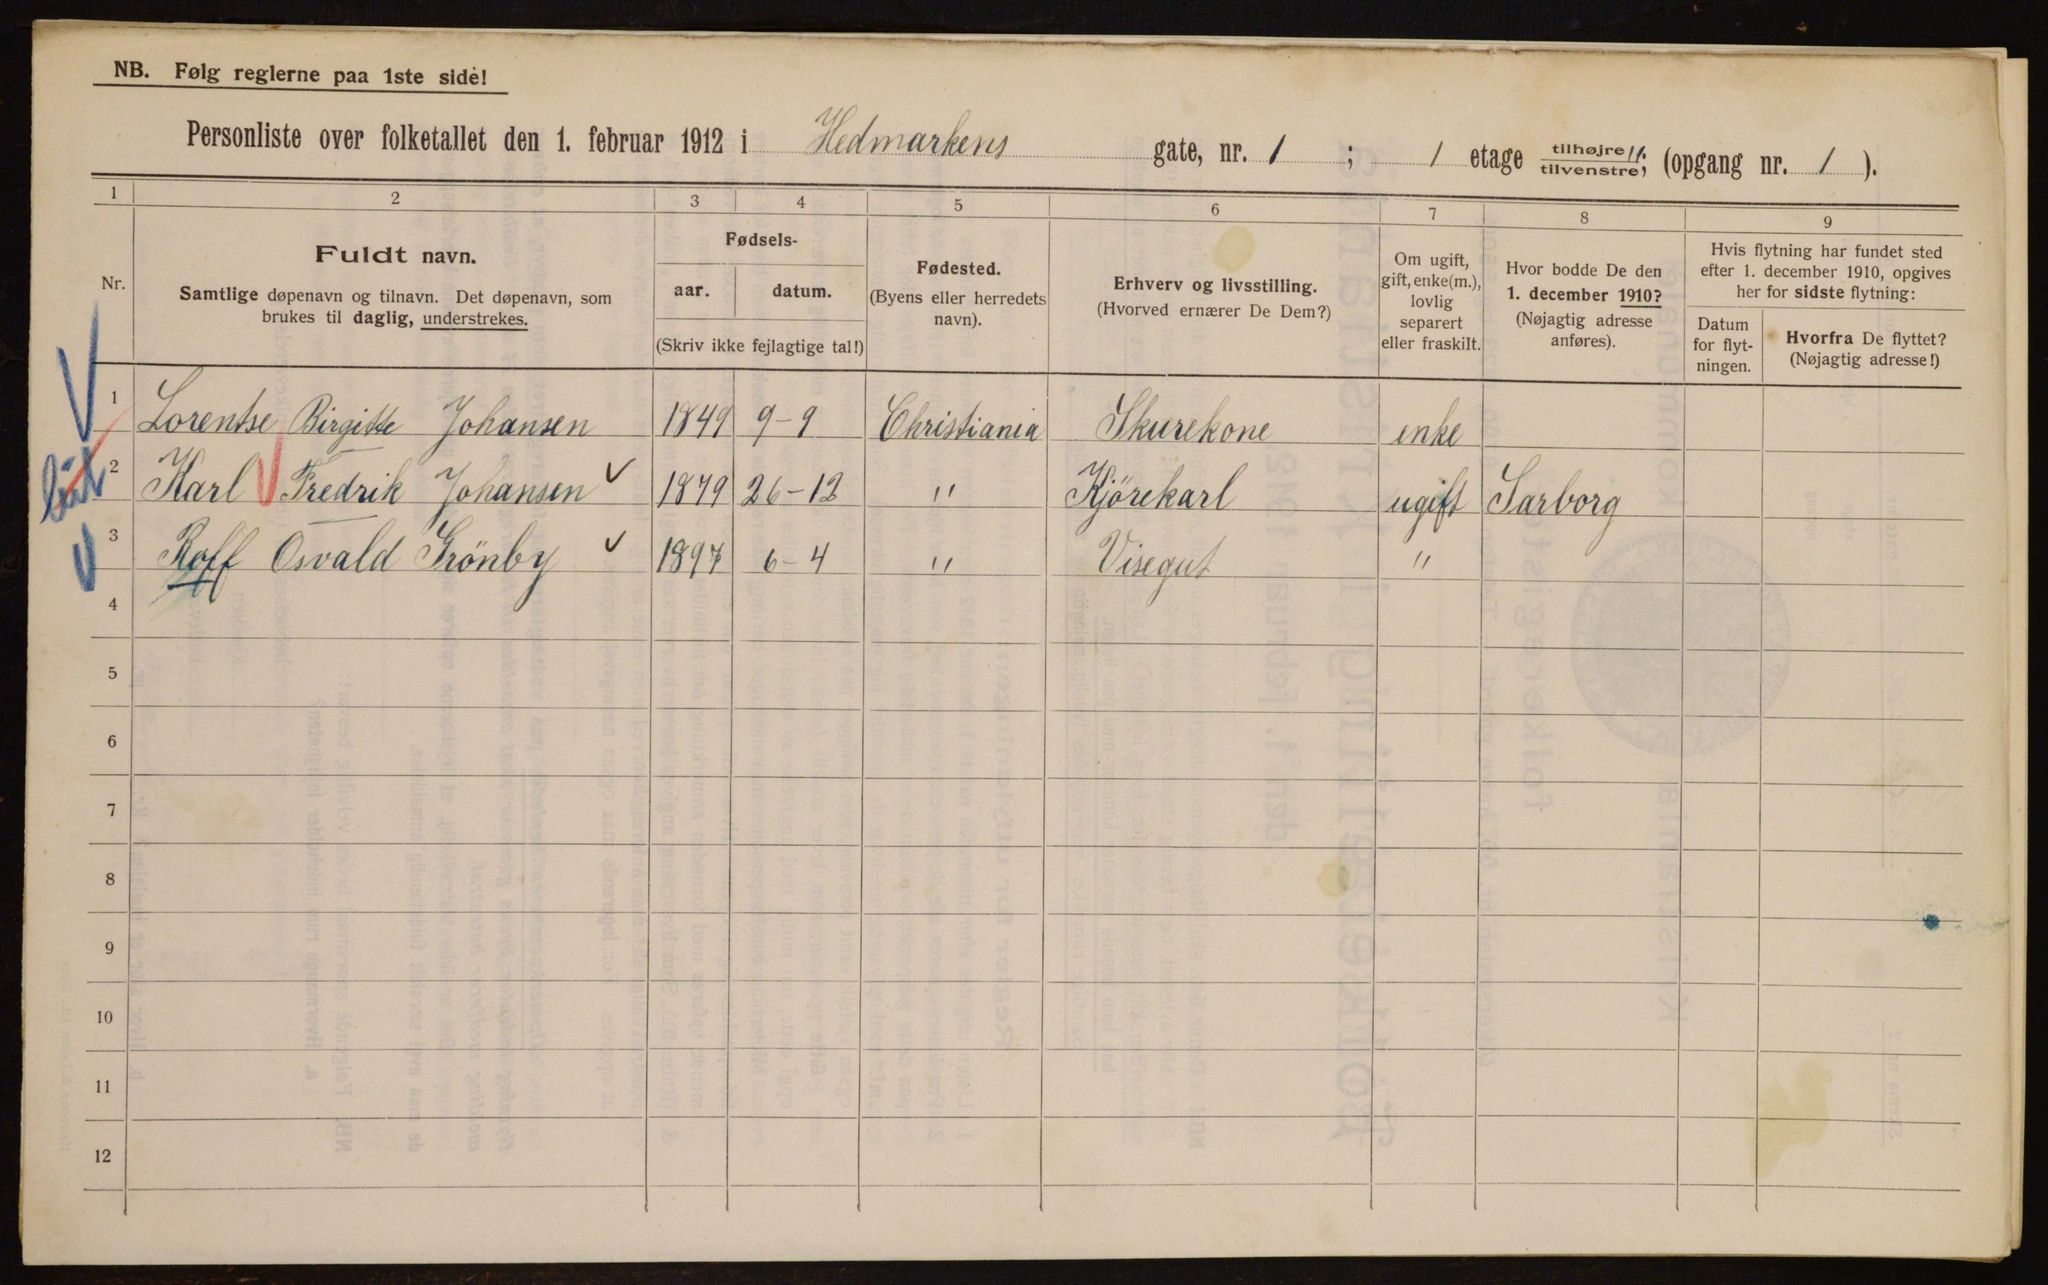 NB. Følg reglerne paa 1ste side!
Personliste over folketallet den 1. februar 1912 i Hedmarkens gate, nr. 1 ; 1 etage tilhøjre/tilvenstre; (opgang nr. 1 ).
1 2 3 4 5 6 7 8 9
Nr.
Fuldt navn.
Samtlige døpenavn og tilnavn. Det døpenavn, som
brukes til daglig, understrekes.
Fødsels-
aar. datum.
(Skriv ikke fejlagtige tal!)
Fødested.
(Byens eller herredets
navn).
Erhverv og livsstilling.
(Hvorved ernærer De Dem?)
Om ugift,
gift, enke(m.),
lovlig
separert
eller fraskilt.
Hvor bodde De den
1. december 1910?
(Nøjagtig adresse
anføres).
Hvis flytning har fundet sted
efter 1. december 1910, opgives
her for sidste flytning:
Datum
for flyt-
ningen.
Hvorfra De flyttet?
(Nøjagtig adresse!)
1 Lorentse Birgitte Johansen 1849 9-9 Christiania Skurekone enke
2 Karl Fredrik Johansen 1879 26-12 " Kjörekarl ugift Sarborg
3 Roff Osvald Grönby 1897 6-4 " Visegut "
4
5
6
7
8
9
10
11
12